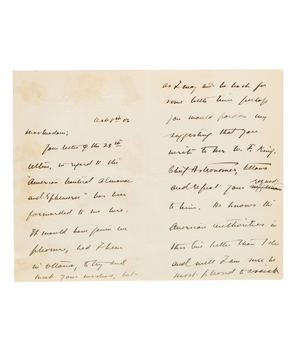 Oct 9th 06
Dear Madam;
Your letter of the 25th
Ultimo, in regard to the
"American Nautical Almanac
and Ephemeris" has been
forwarded to me here.
It would have given me
pleasure, had I been
in Ottawa, to try and
meet your wishes, but
as I may not be back for
some little time perhaps
you would pardon my
suggesting that you
write to Mr. W. F. King,
Chief Astronomer, Ottawa
and repeat your request
to him. He knows the
American authorities in
this line better than I do
and will I am sure be
most pleased to assist